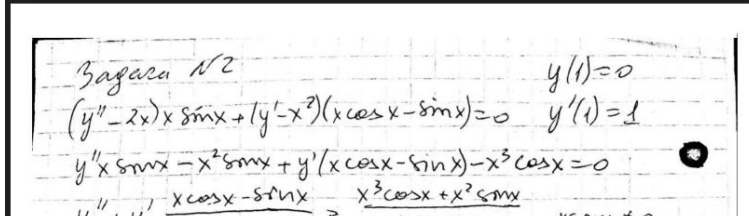 Задача №2 y(1)=0
(y''-2x)x sinx+(y'-x²)(xcosx-sinx)=0 y'(1)=1
y''x sinx-x²sinx+y'(xcosx-sinx)-x³cosx=0
xcosx-sinx x³cosx+x²sinx